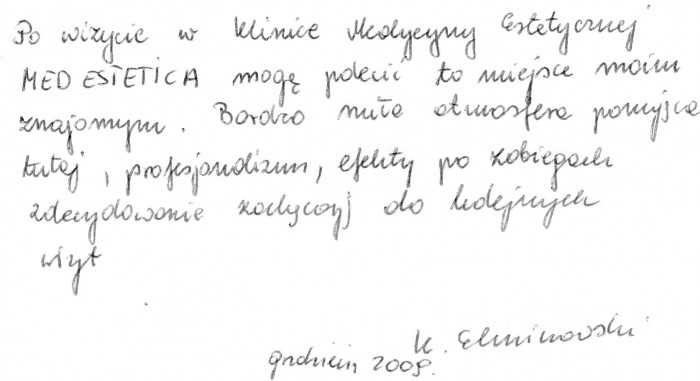 Po wizycie w klinice Medycyny Estetycznej
MED ESTETICA mogę polecić to miejsce moim
znajomym. Bardzo miła atmosfera panująca
tutaj, profesjonalizm, efekty po zabiegach
zdecydowanie zachęcają do kolejnych
wizyt
K.
grudzień 2009.